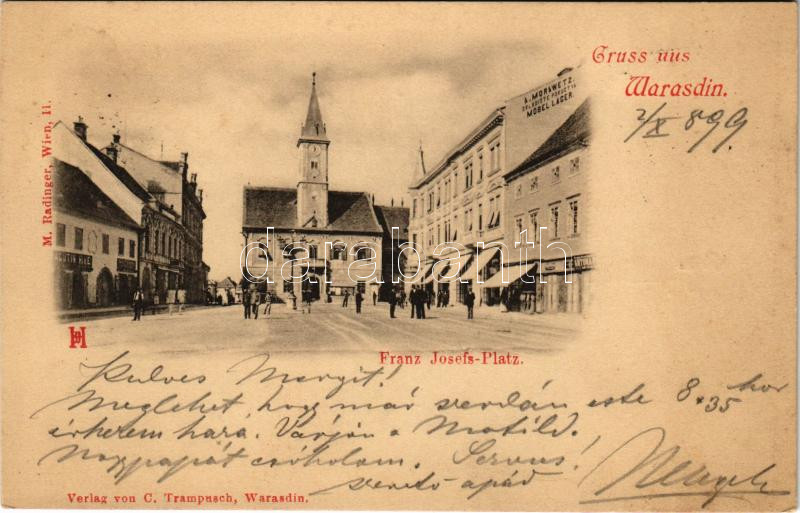 Gruss aus
Warasdin.
2/X 899
M. Radinger, Wien, II.
A. MORAWETZ
MÖBEL LAGER
darabanth
Franz Josefs-Platz.
Kedves Margit!
Meglehet, hogy már szerdán este 8 35 kor
érkezem haza. Várjon a Matild.
Nagypapát csókolom. Servus!
szerető apád
Verlag von C. Trampusch, Warasdin.